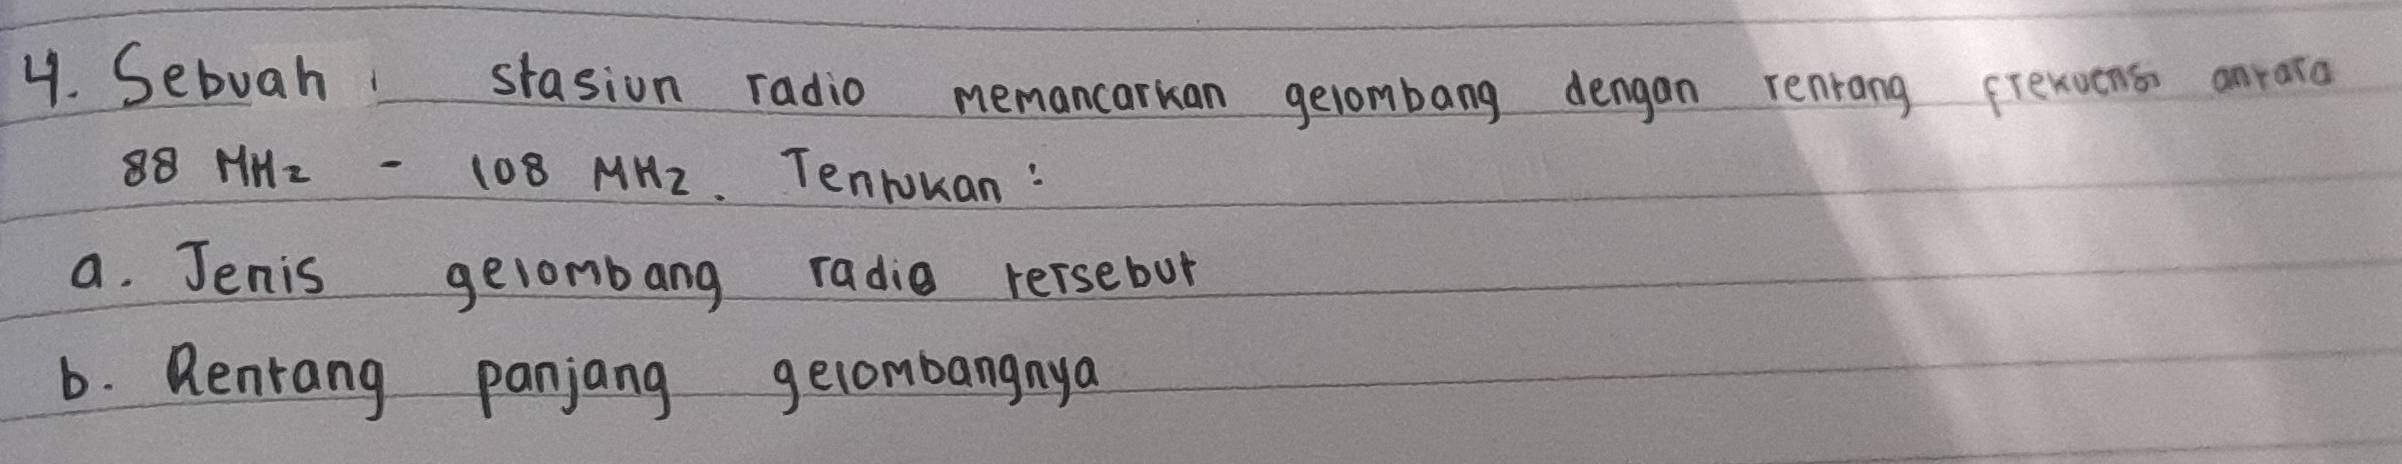 4. Sebuah stasiun radio memancarkan gelombang dengan rentang frekuensi antara
88 MHz - 108 MHz. Tentukan :
a. Jenis gelombang radio tersebut
b. Rentang panjang gelombangnya